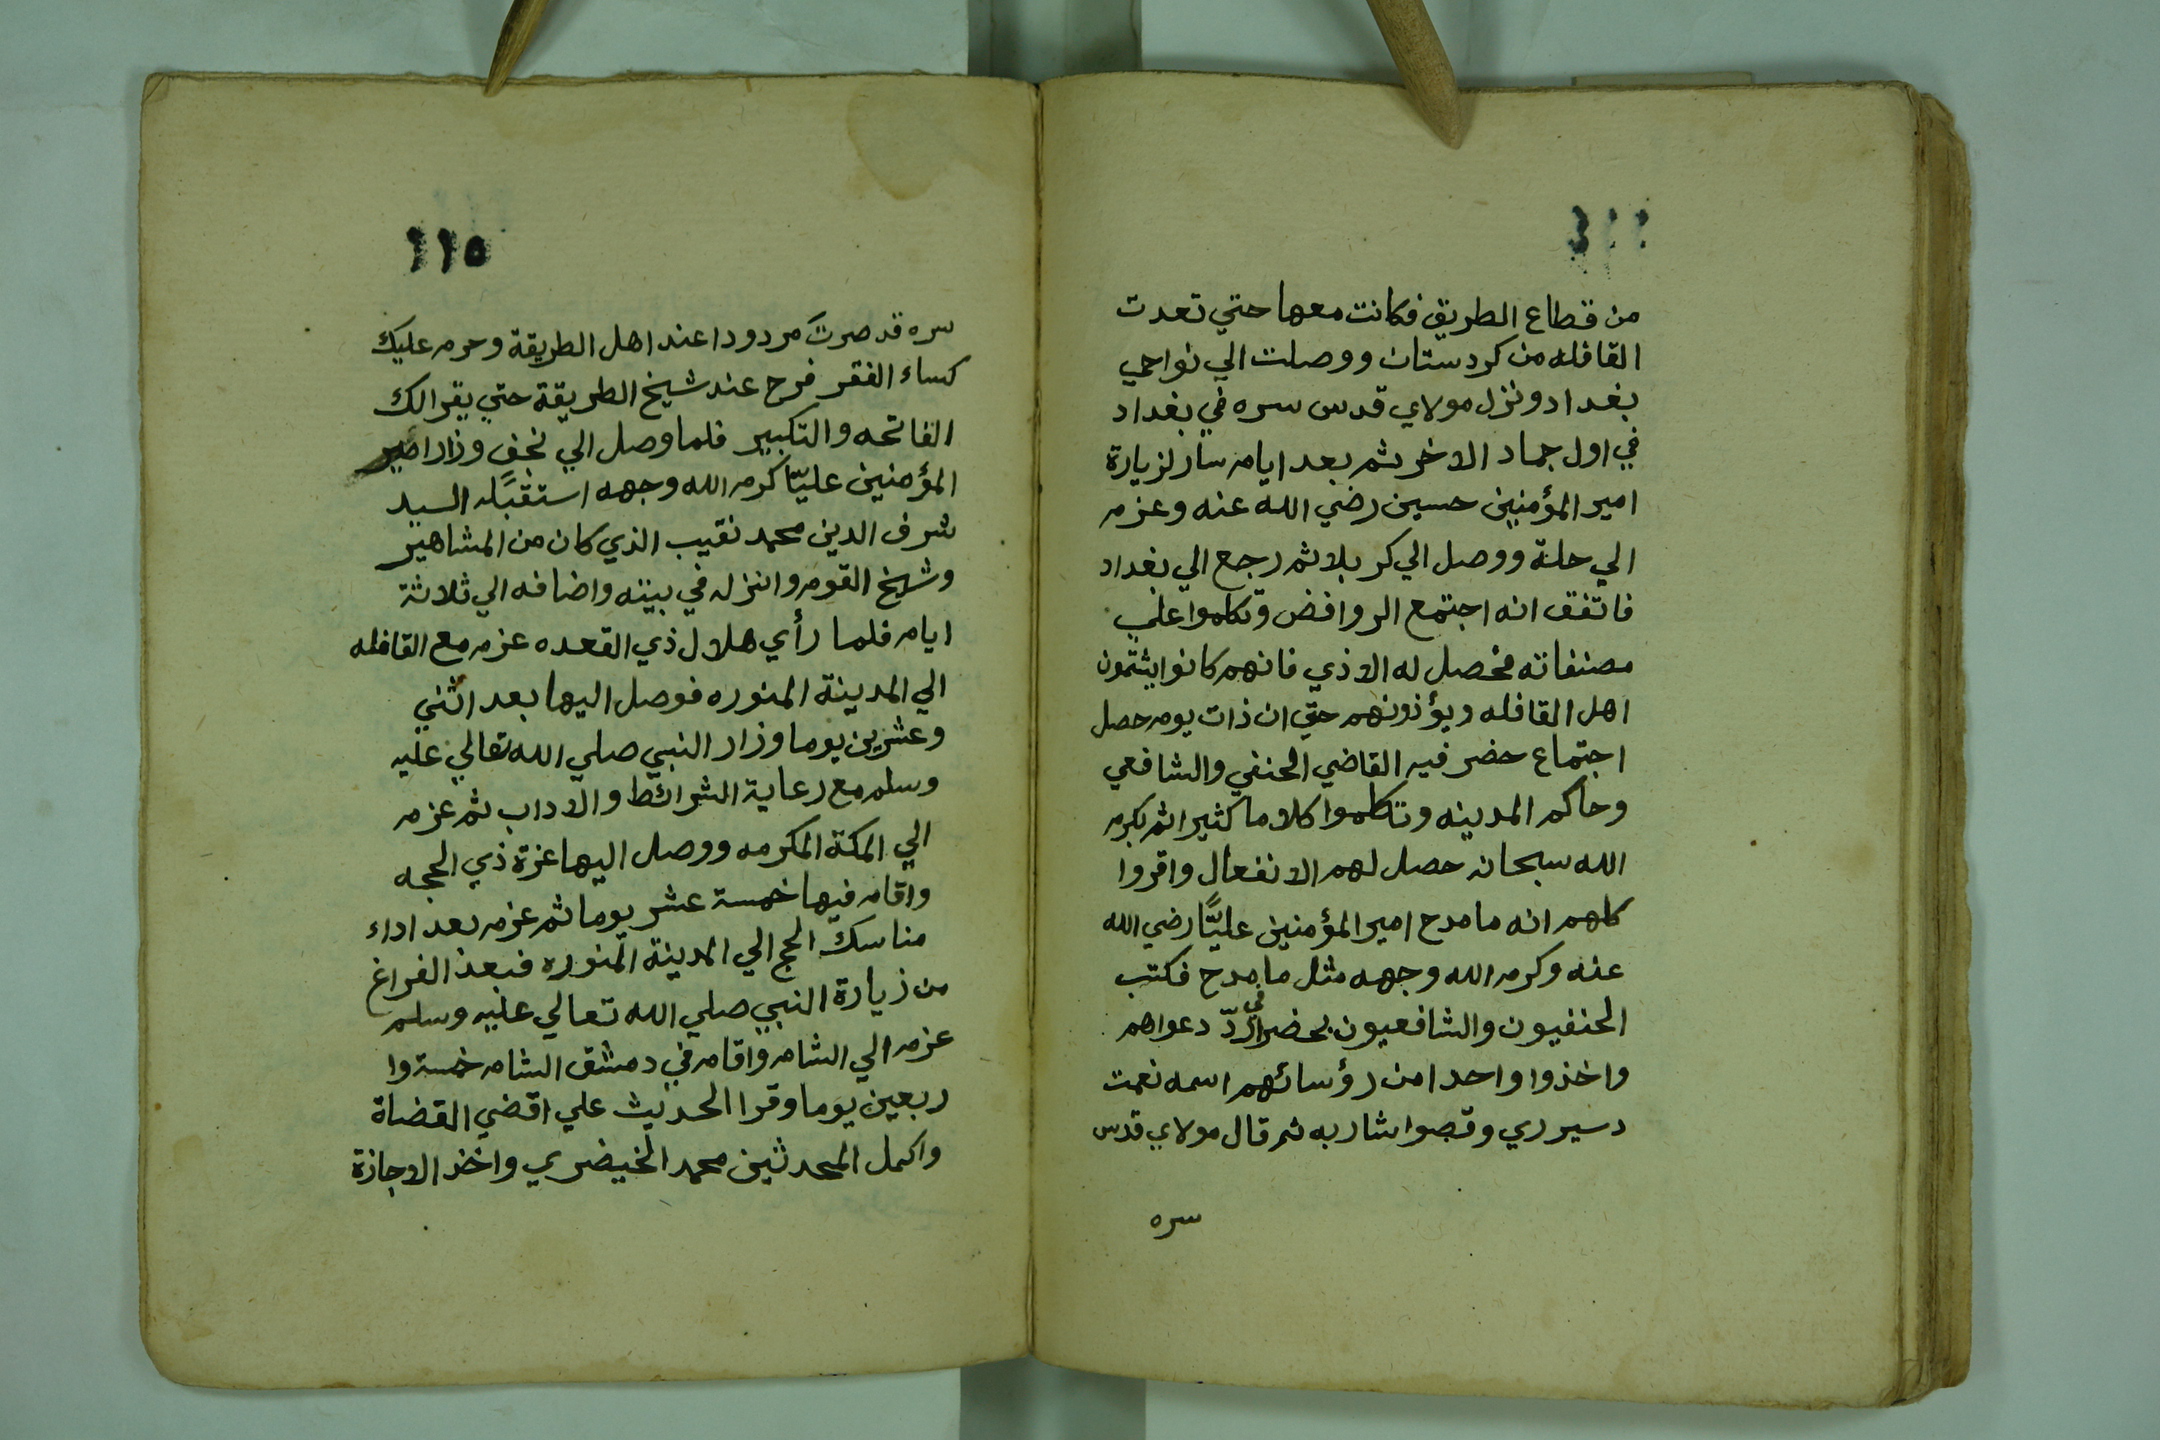 من قطاع الطريق فكانت معها حتي تعدت
القافله من كردستان ووصلت الي نواحي
بغداد ونزل مولاي قدس سره في بغداد
في اول جماد الاخر ثم بعد ايام سار لزيارة
امير المؤمنين حسين رضي الله عنه وعزم
الي حلة ووصل الي كربلا ثم رجع الي بغداد
فاتفق انه اجتمع الروافض وتكلموا علي
مصنفاته فحصل له الاذي فانهم كانوا يشتمون
اهل القافله ويؤذونهم حتي ان ذات يوم حصل
اجتماع حضر فيه القاضي الحنفي والشافعي
وحاكم المدينه وتكلموا كلاما كثيرا ثم بكرم
الله سبحانه حصل لهم الانفعال واقروا
كلهم انه ما مدح امير المؤمنين عليًّا رضي الله
عنه وكرم الله وجهه مثل ما مدح فكتب
الحنفيون والشافعيون في ردّ دعواهم
واخذوا واحدا من رؤسائهم اسمه نعمت
وقصوا شاربه ثم قال مولاي قدس
سره
١١٥
سره قد صرتَ مردودا عند اهل الطريقة وحرم عليك
كساء الفقر فرح عند شيخ الطريقة حتي يقرا لك
الفاتحه والتكبير فلما وصل الي نجف وزار امير
المؤمنين عليّا كرم الله وجهه استقبَله السيد
شرف الدين محمد نقيب الذي كان من المشاهير
وشيخ القوم وانزله في بيته واضافه الي ثلاثة
ايام فلما رأي هلال ذي القعده عزم مع القافله
الي المدينة المنوره فوصل اليها بعد اثني
وعشرين يوما وزار النبي صلي الله تعالي عليه
وسلم مع رعاية الشرائط والاداب ثم عزم
الي المكة المكرمه ووصل اليها غزة ذي الحجه
واقام فيها خمسة عشر يوما ثم عزم بعد اداء
مناسك الحج الي المدينة المنوره فبعد الفراغ
من زيارة النبي صلي الله تعالي عليه وسلم
عزم الي الشام واقام في دمشق الشام خمسة وا
ربعين يوما وقرا الحديث علي اقضي القضاة
واكمل المحدثين محمد الخيضري واخذ الاجازة